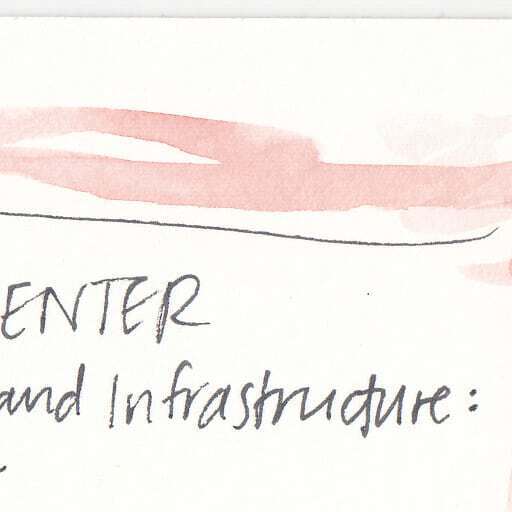 ENTER
and Infrastructure: